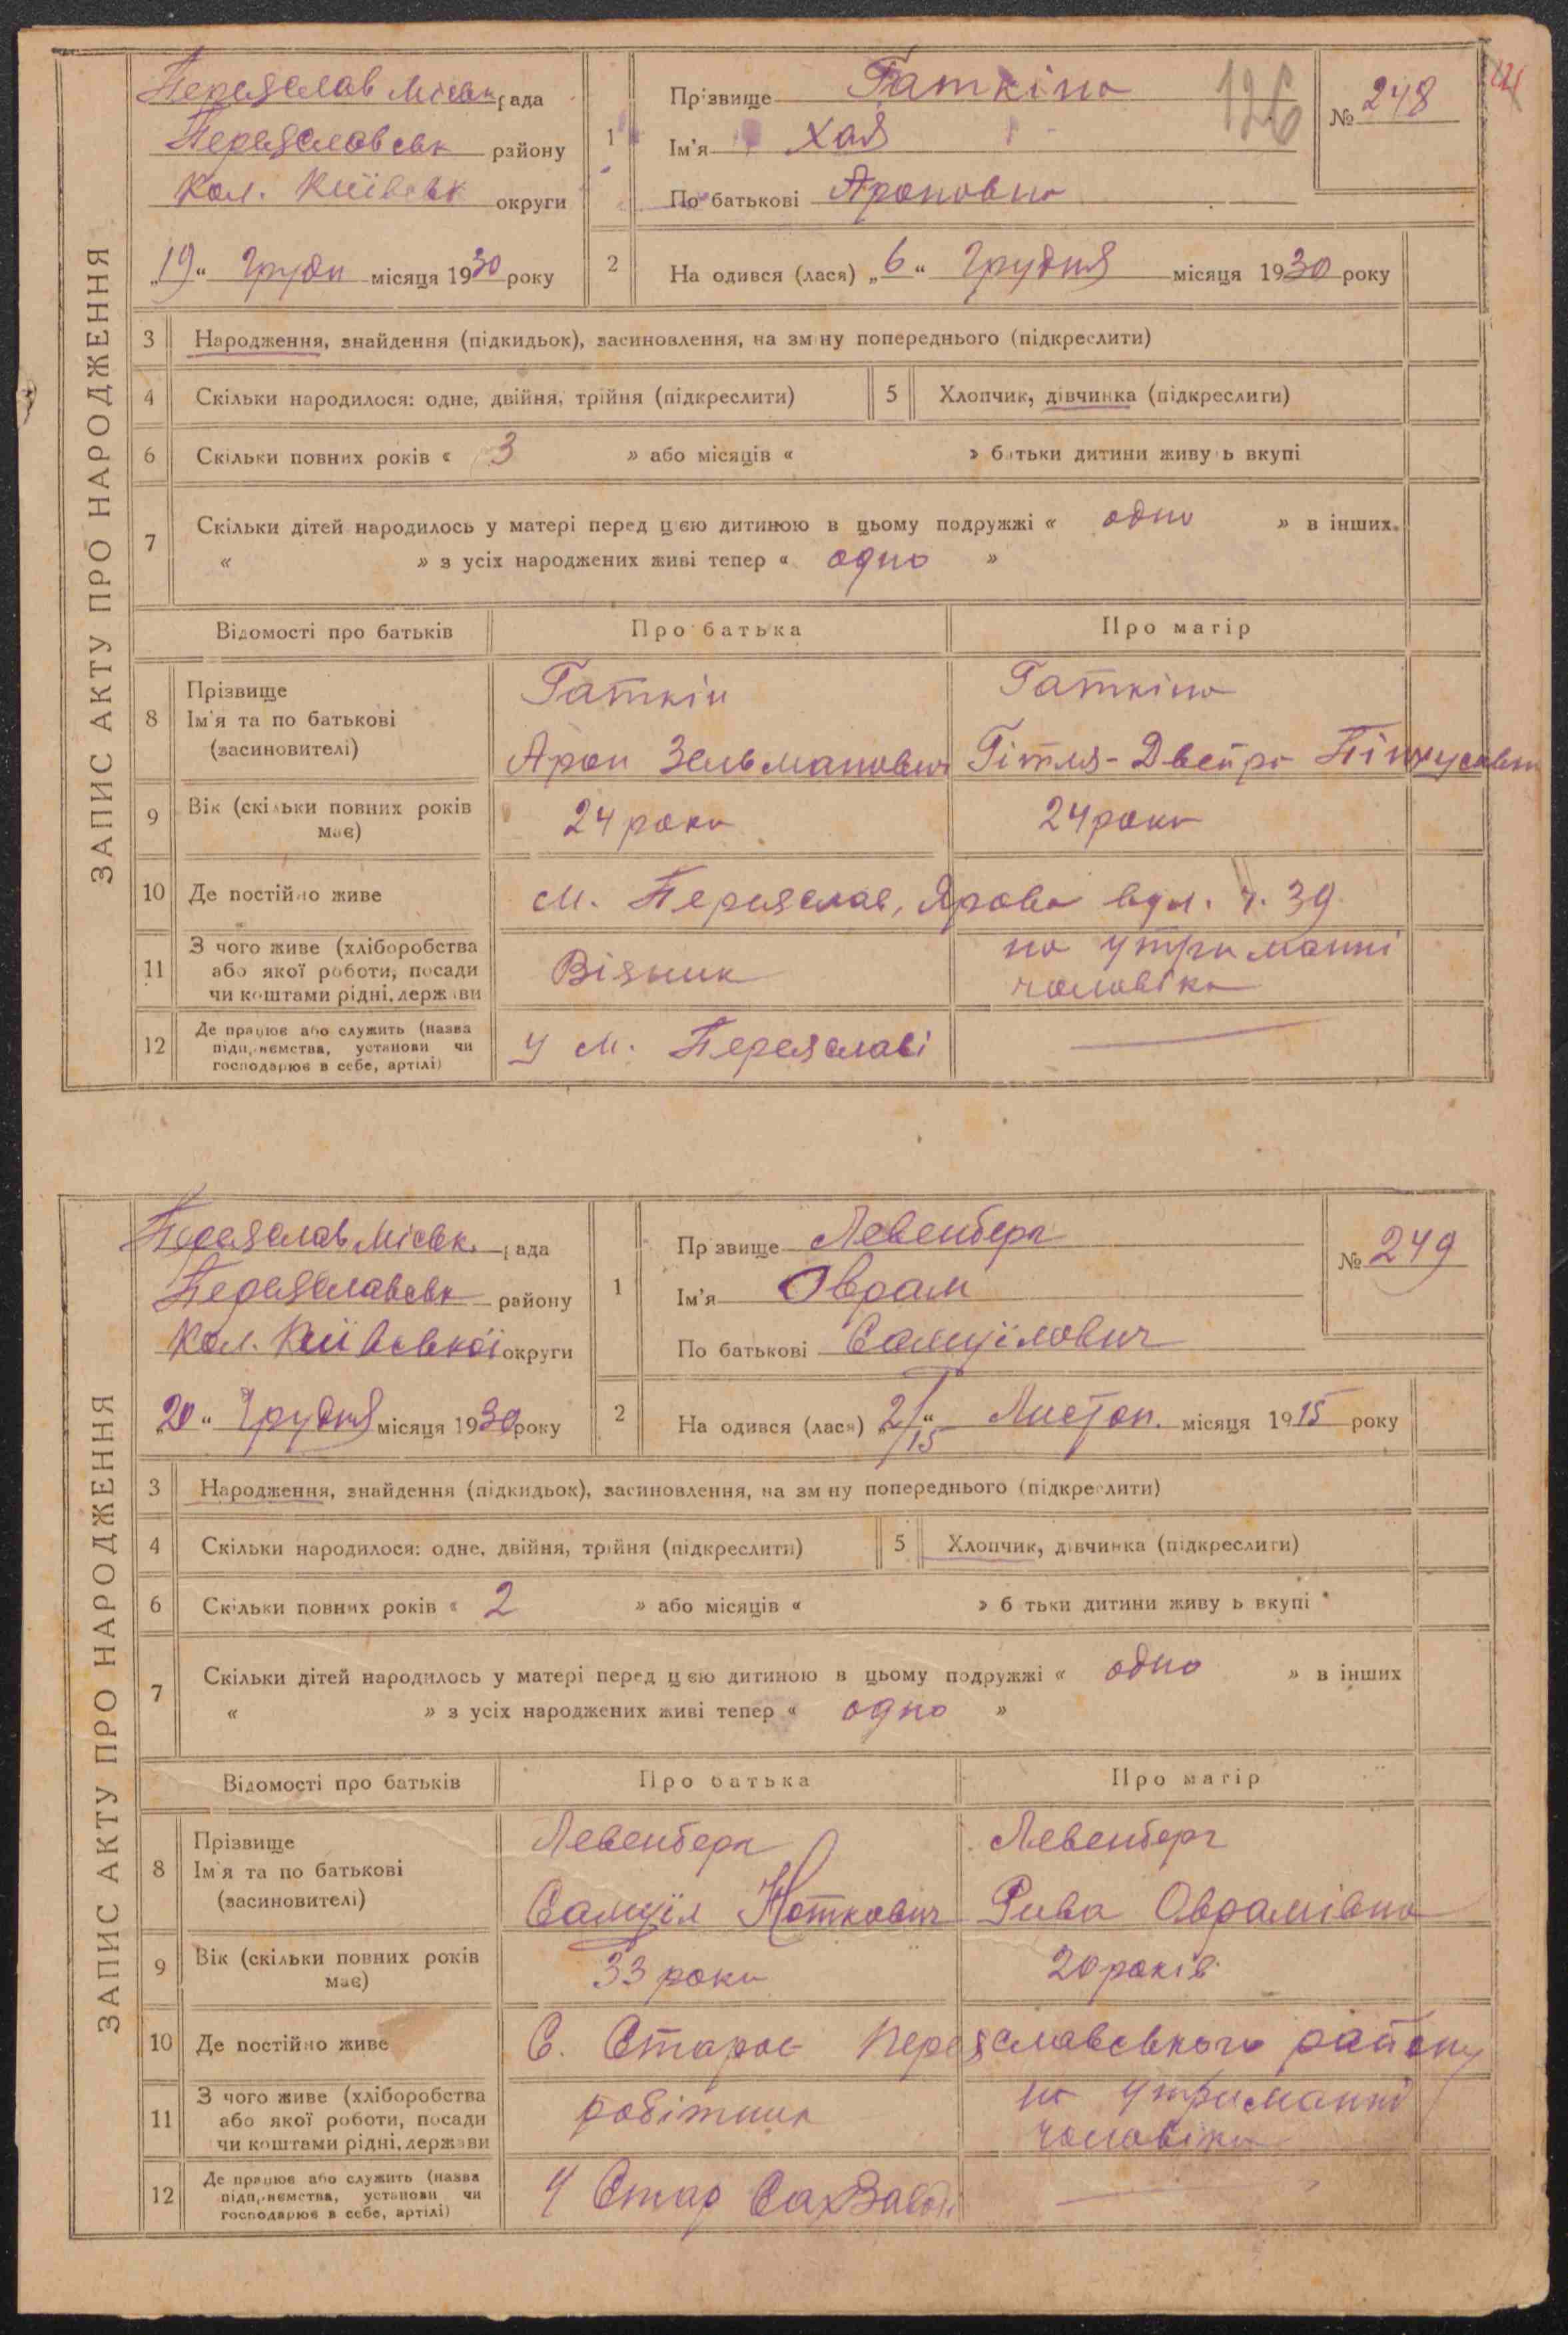 ЗАПИС АКТУ ПРО НАРОДЖЕННЯ
Переяслав Міськ рада
Переяславськ району
Кол. Київськ округи
„19“ Грудн місяця 1930 року
1
Прізвище Гаткіна
Ім'я Хая
По батькові Ароновна
126
№ 248
2
На одився (лася) „6“ Грудня місяця 1930 року
3 Народження, знайдення (підкидьок), засиновлення, на зміну попереднього (підкреслити)
4 Скільки народилося: одне, двійня, трійня (підкреслити)
5 Хлопчик, дівчинка (підкреслити)
6 Скільки повних років « 3 » або місяців « » батьки дитини живуть вкупі
7 Скільки дітей народилось у матері перед цією дитиною в цьому подружжі « одно » в інших
« » з усіх народжених живі тепер « одно »
Відомості про батьків Про батька Про матір
8 Прізвище
Ім'я та по батькові
(засиновителі)
Гаткін
Арон Зельманович
Гаткіна
Гітля-Двейра
9 Вік (скільки повних років має)
24 роки
24 роки
10 Де постійно живе
м. Переяслав, Ярова вул. ч. 39
11 З чого живе (хліборобства
або якої роботи, посади
чи коштами рідні, держави
Візник
на утриманні
чоловіка
12 Де працює або служить (назва
підприємства, установи чи
господарює в себе, артілі)
У м. Переяславі
ЗАПИС АКТУ ПРО НАРОДЖЕННЯ
Переяслав Міськ. рада
Переяславськ району
Кол. Київської округи
„20“ Грудня місяця 1930 року
1
Прізвище Левенберг
Ім'я Оврам
По батькові Самуїлович
№ 249
2
На одився (лася) „2/15“ Листоп. місяця 1915 року
3 Народження, знайдення (підкидьок), засиновлення, на зміну попереднього (підкреслити)
4 Скільки народилося: одне, двійня, трійня (підкреслити)
5 Хлопчик, дівчинка (підкреслити)
6 Скільки повних років « 2 » або місяців « » батьки дитини живуть вкупі
7 Скільки дітей народилось у матері перед цією дитиною в цьому подружжі « одно » в інших
« » з усіх народжених живі тепер « одно »
Відомості про батьків Про батька Про матір
8 Прізвище
Ім'я та по батькові
(засиновителі)
Левенберг
Самуїл Ноткович
Левенберг
Рива Оврамівна
9 Вік (скільки повних років має)
33 роки
20 років
10 Де постійно живе
С. Старое Переяславського району
11 З чого живе (хліборобства
або якої роботи, посади
чи коштами рідні, держави
робітник
на утриманні
чоловіка
12 Де працює або служить (назва
підприємства, установи чи
господарює в себе, артілі)
У Стар СахЗаводі